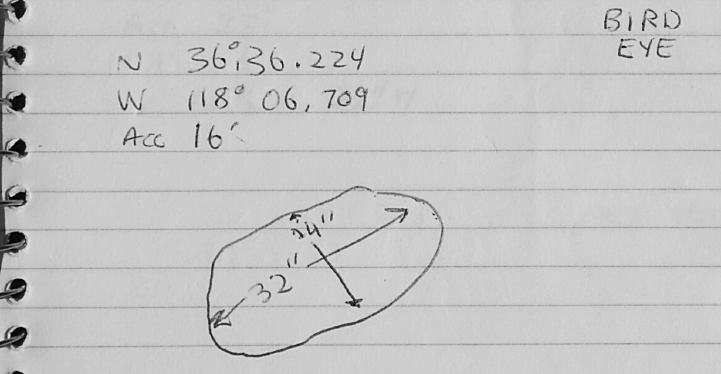 BIRD
EYE
N 36° 36.224
W 118° 06,709
Acc 16'
24"
32"